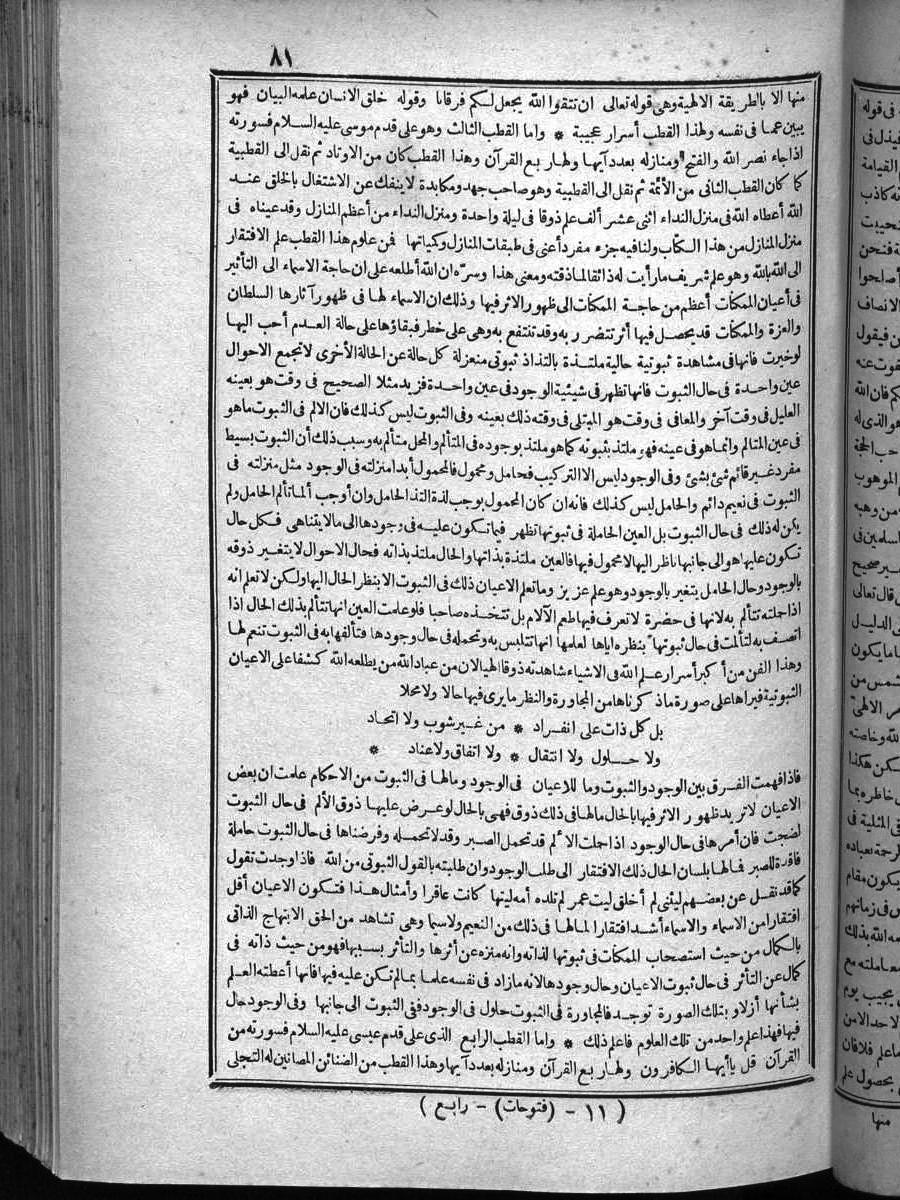 ٨١
منها الا بالطريقة الالهية وهى قوله تعالى ان تتقوا الله يجعل لكم فرقانا وقوله خلق الانسان علمه البيان فهو
يبين عما فى نفسه ولهذا القطب أسرار عجيبة * واما القطب الثالث وهو على قدم موسى عليه السلام فسورته
اذا جاء نصر الله والفتح ومنازله بعدد آيها ولها ربع القرآن وهذا القطب كان من الاوتاد ثم نقل الى القطبية
كما كان القطب الثانى من الأئمة ثم نقل الى القطبية وهو صاحب جهد ومكابدة لا ينفك عن الاشتغال بالخلق عند
الله أعطاه الله فى منزل النداء اثنى عشر ألف علم ذوقا فى ليلة واحدة ومنزل النداء من أعظم المنازل وقد عيناه فى
منزل المنازل من هذا الكتاب ولنا فيه جزء مفرد أعنى فى طبقات المنازل وكمياتها فمن علوم هذا القطب علم الافتقار
الى الله بالله وهو علم شريف ما رأيت له ذائقا لما ذقته ومعنى هذا وسره ان الله أطلعه على ان حاجة الاسماء الى التأثير
فى أعيان الممكنات أعظم من حاجة الممكنات الى ظهور الاثر فيها وذلك ان الاسماء لها فى ظهور آثارها السلطان
والعزة والممكنات قد يحصل فيها أثر تتضرر به وقد تنتفع به وهى على خطر فبقاؤها على حالة العدم أحب اليها
لو خيرت فانها فى مشاهدة ثبوتية حالية ملتذة بالتذاذ ثبوتى منعزلة كل حالة عن الحالة الأخرى لا تجمع الاحوال
عين واحدة فى حال الثبوت فانها تظهر فى شيئية الوجود فى عين واحدة فزيد مثلا الصحيح فى وقت هو بعينه
العليل فى وقت آخر والمعافى فى وقت هو المبتلى فى وقته ذلك بعينه وفى الثبوت ليس كذلك فان الالم فى الثبوت ما هو
فى عين المتألم وانما هو فى عينه فهو ملتذ بثبوته كما هو ملتذ بوجوده فى المتألم والمحل متألم به وسبب ذلك أن الثبوت بسيط
مفرد غير قائم شئ بشئ وفى الوجود ليس الا التركيب فحامل ومحمول فالمحمول أبدا منزلته فى الوجود مثل منزلته فى
الثبوت فى نعيم دائم والحامل ليس كذلك فانه ان كان المحمول يوجب لذة التذ الحامل وان أوجب ألما تألم الحامل ولم
يكن له ذلك فى حال الثبوت بل العين الحاملة فى ثبوتها تظهر فيما تكون عليه فى وجودها الى ما لا يتناهى فكل حال
تكون عليها هو الى جانبها ناظر اليها لا محمول فيها فالعين ملتذة بذاتها والحال ملتذ بذاته فحال الاحوال لا يتغير ذوقه
بالوجود وحال الحامل يتغير بالوجود وهو علم عزيز وما تعلم الاعيان ذلك فى الثبوت الا بنظر الحال اليها ولكن لا تعلم انه
اذا حملته تتألم به لانها فى حضرة لا تعرف فيها طعم الآلام بل تتخذه صاحبا فلو علمت العين انها تتألم بذلك الحال اذا
اتصف به لتألمت فى حال ثبوتها بنظره اياها لعلمها انها تتلبس به وتحمله فى حال وجودها فتألفها به فى الثبوت تنعم لها
وهذا الفن من أكبر أسرار علم الله فى الاشياء شاهدته ذوقا الهيا لان من عباد الله من يطلعه الله كشفا على الاعيان
الثبوتية فيراها على صورة ما ذكرناها من المجاورة والنظر ما يرى فيها حالا ولا محلا
بل كل ذات على انفراد * من غير شوب ولا اتحاد
ولا حلول ولا انتقال * ولا اتفاق ولا عناد *
فاذا فهمت الفرق بين الوجود والثبوت وما للاعيان فى الوجود وما لها فى الثبوت من الاحكام علمت ان بعض
الاعيان لا تريد ظهور الاثر فيها بالحال ما لها فى ذلك ذوق فهى بالحال لو عرض عليها ذوق الألم فى حال الثبوت
لضجت فان أمرها فى حال الوجود اذا حملت الألم قد تحمل الصبر وقد لا تحمله وفرضناها فى حال الثبوت حاملة
فاقدة للصبر فما لها بلسان الحال ذلك الافتقار الى طلب الوجود وان طلبته بالقول الثبوتى من الله فاذا وجدت تقول
كما قد نقل عن بعضهم ليتنى لم أخلق ليت عمر لم تلده أمه ليتها كانت عاقرا وأمثال هذا فتكون الاعيان أقل
افتقارا من الاسماء والاسماء أشد افتقارا لما لها فى ذلك من النعيم ولا سيما وهى تشاهد من الحق الابتهاج الذاتى
بالكمال من حيث استصحاب الممكنات فى ثبوتها لذاته وانه منزه عن أثرها والتأثر بسببها فهو من حيث ذاته فى
كمال عن التأثر فى حال ثبوت الاعيان وحال وجودها لانه ما زاد فى نفسه علما بما لم تكن عليه فيها فانها أعطته العلم
بشأنها أزلا وبتلك الصورة توجد فالمجاورة فى الثبوت حلول فى الوجود ففى الثبوت الى جانبها وفى الوجود حال
فيها فهذا علم واحد من تلك العلوم فاعلم ذلك * واما القطب الرابع الذى على قدم عيسى عليه السلام فسورته من
القرآن قل يا أيها الكافرون ولها ربع القرآن ومنازله بعدد آيها وهذا القطب من الضنائن المصانين له التجلى
( ١١ - (فتوحات) - رابع )
منها